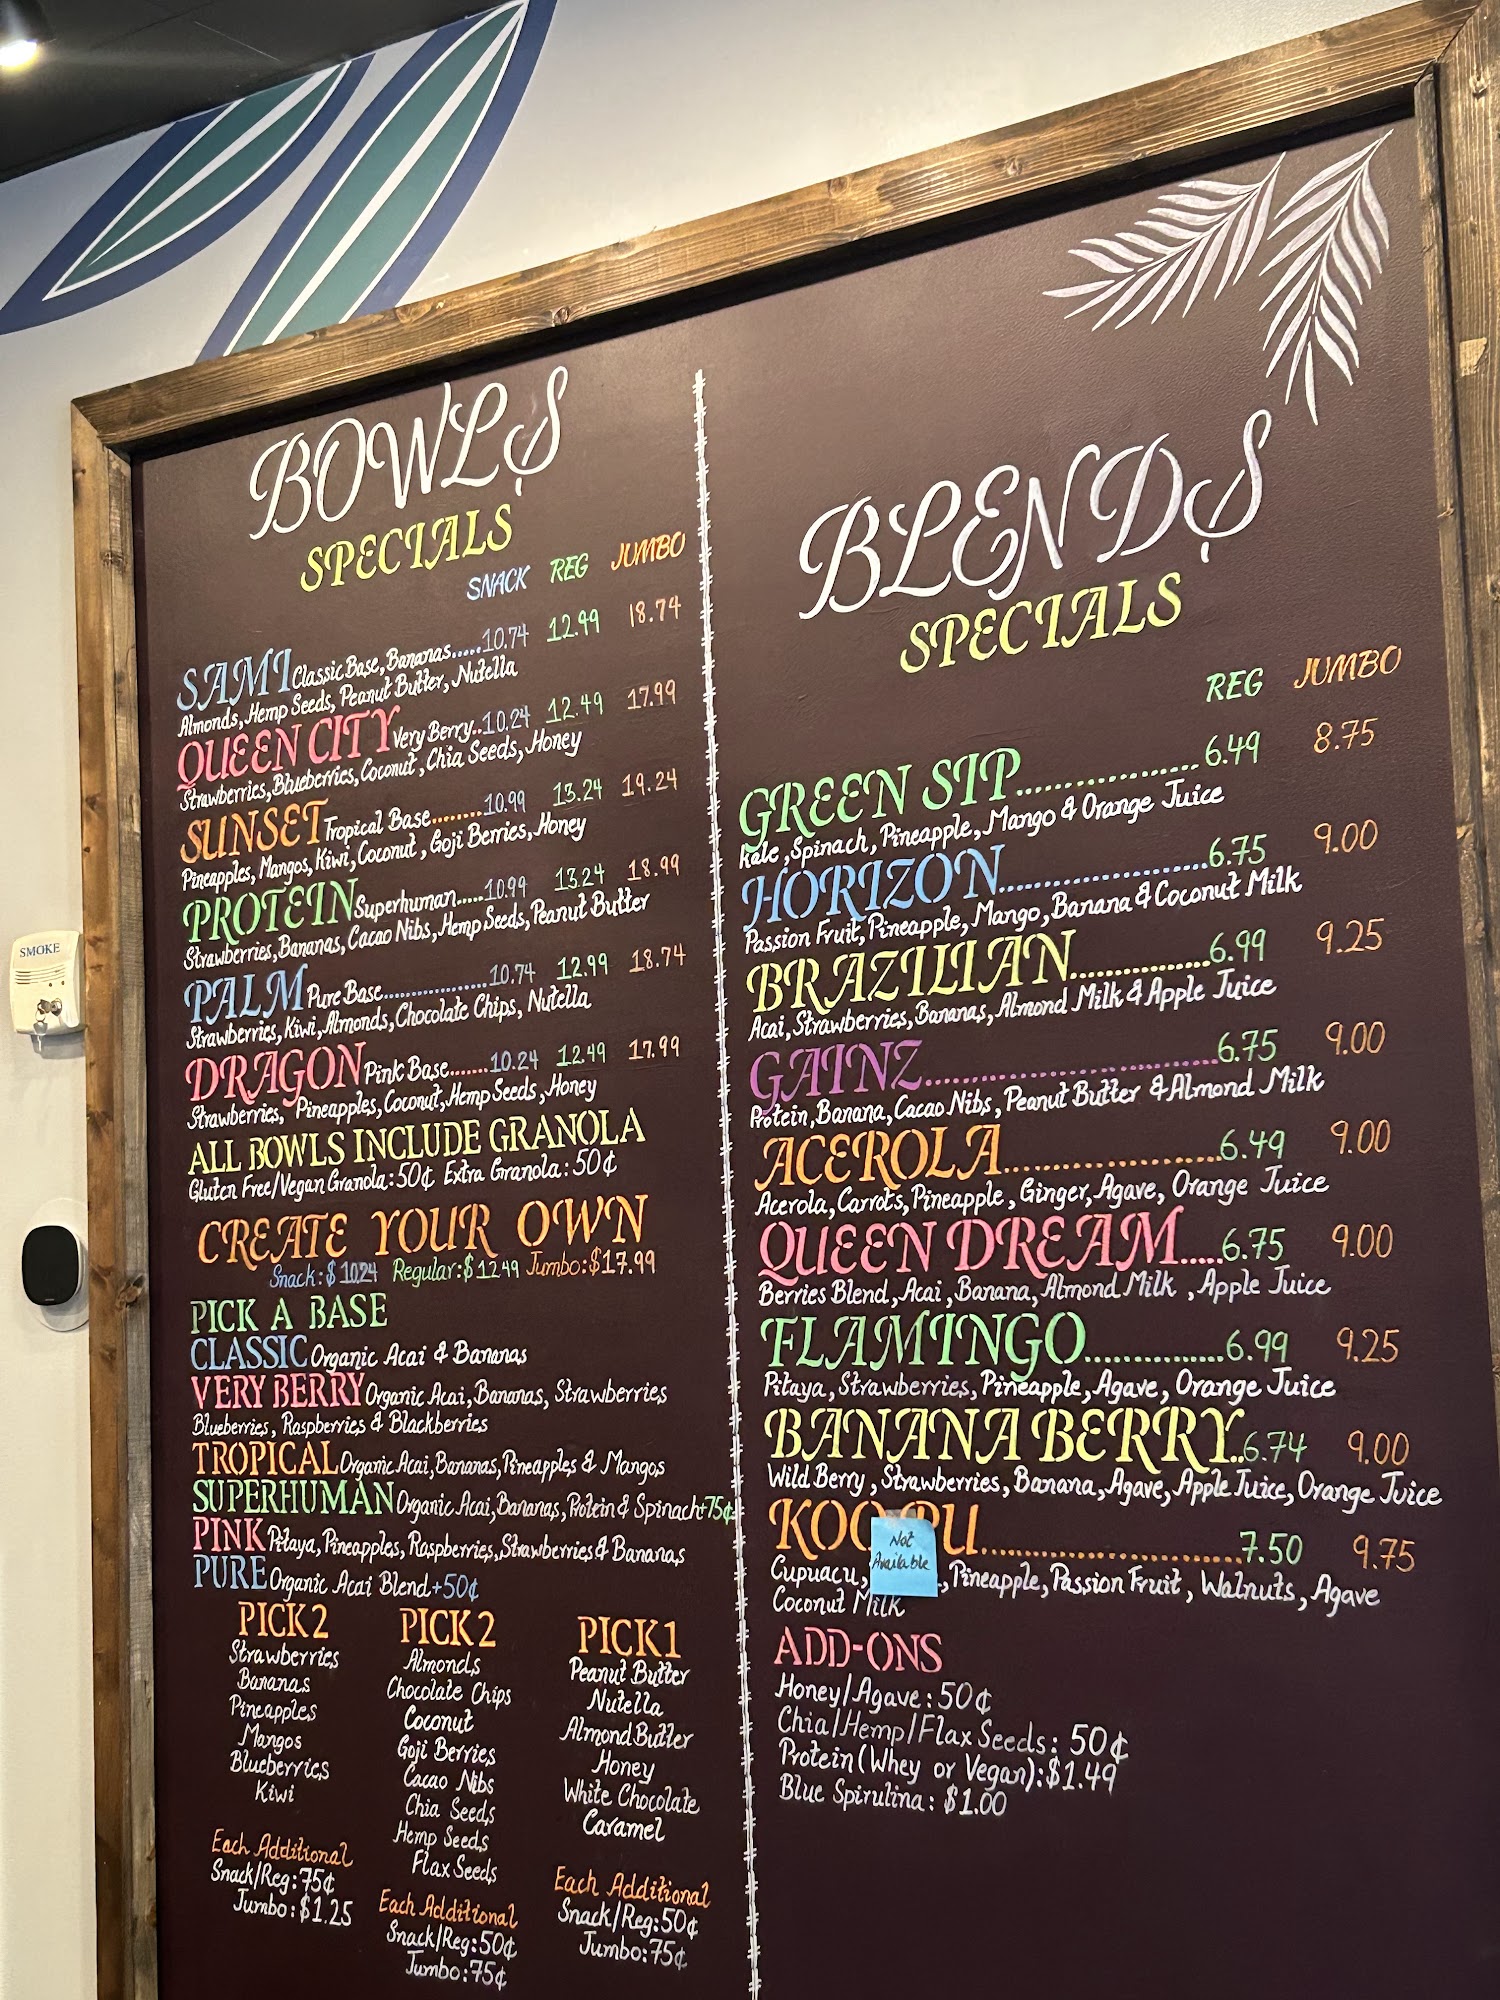 SMOKE
BOWLS
SPECIALS
SNACK REG JUMBO
SAMI Classic Base, Bananas.....10.74 12.99 18.74
Almonds, Hemp Seeds, Peanut Butter, Nutella
QUEEN CITY Very Berry..10.24 12.49 17.99
Strawberries, Blueberries, Coconut, Chia Seeds, Honey
SUNSET Tropical Base........10.99 13.24 19.24
Pineapples, Mangos, Kiwi, Coconut, Goji Berries, Honey
PROTEIN Superhuman.....10.99 13.24 18.99
Strawberries, Bananas, Cacao Nibs, Hemp Seeds, Peanut Butter
PALM Pure Base....................10.74 12.99 18.74
Strawberries, Kiwi, Almonds, Chocolate Chips, Nutella
DRAGON Pink Base.......10.24 12.49 17.99
Strawberries, Pineapples, Coconut, Hemp Seeds, Honey
ALL BOWLS INCLUDE GRANOLA
Gluten Free/Vegan Granola: 50¢ Extra Granola: 50¢
CREATE YOUR OWN
Snack: $10.24 Regular: $12.49 Jumbo: $17.99
PICK A BASE
CLASSIC Organic Acai & Bananas
VERY BERRY Organic Acai, Bananas, Strawberries
Blueberries, Raspberries & Blackberries
TROPICAL Organic Acai, Bananas, Pineapples & Mangos
SUPERHUMAN Organic Acai, Bananas, Protein & Spinach +75¢
PINK Pitaya, Pineapples, Raspberries, Strawberries & Bananas
PURE Organic Acai Blend +50¢
PICK 2
Strawberries
Bananas
Pineapples
Mangos
Blueberries
Kiwi
Each Additional
Snack/Reg: 75¢
Jumbo: $1.25
PICK 2
Almonds
Chocolate Chips
Coconut
Goji Berries
Cacao Nibs
Chia Seeds
Hemp Seeds
Flax Seeds
Each Additional
Snack/Reg: 50¢
Jumbo: 75¢
PICK 1
Peanut Butter
Nutella
Almond Butter
Honey
White Chocolate
Caramel
Each Additional
Snack/Reg: 50¢
Jumbo: 75¢
BLENDS
SPECIALS
REG JUMBO
GREEN SIP.................6.49 8.75
Kale, Spinach, Pineapple, Mango & Orange Juice
HORIZON.....................6.75 9.00
Passion Fruit, Pineapple, Mango, Banana & Coconut Milk
BRAZILIAN...............6.99 9.25
Acai, Strawberries, Bananas, Almond Milk & Apple Juice
GAINZ.............................6.75 9.00
Protein, Banana, Cacao Nibs, Peanut Butter & Almond Milk
ACEROLA.....................6.49 9.00
Acerola, Carrots, Pineapple, Ginger, Agave, Orange Juice
QUEEN DREAM.....6.75 9.00
Berries Blend, Acai, Banana, Almond Milk, Apple Juice
FLAMINGO...............6.99 9.25
Pitaya, Strawberries, Pineapple, Agave, Orange Juice
BANANA BERRY..6.74 9.00
Wild Berry, Strawberries, Banana, Agave, Apple Juice, Orange Juice
Not
Available
7.50 9.75
Cupuacu, Pineapple, Passion Fruit, Walnuts, Agave
Coconut Milk
ADD-ONS
Honey/Agave: 50¢
Chia/Hemp/Flax Seeds: 50¢
Protein (Whey or Vegan): $1.49
Blue Spirulina: $1.00